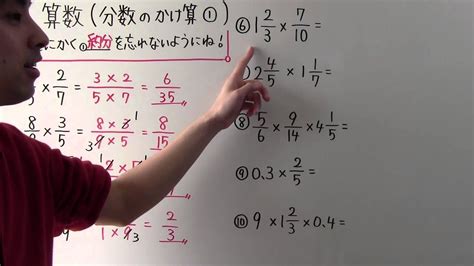 算数(分数のかけ算①)
にかく約分を忘れないようにね!
× 2/7 = 3×2/5×7 = 6/35
8/ × 3/5 = 8×3/ = 8/15
= 2/3
⑥ 1 2/3 × 7/10 =
2 4/5 × 1 1/7 =
⑧ 5/6 × 9/14 × 4 1/5 =
⑨ 0.3 × 2/5 =
⑩ 9 × 1 2/3 × 0.4 =